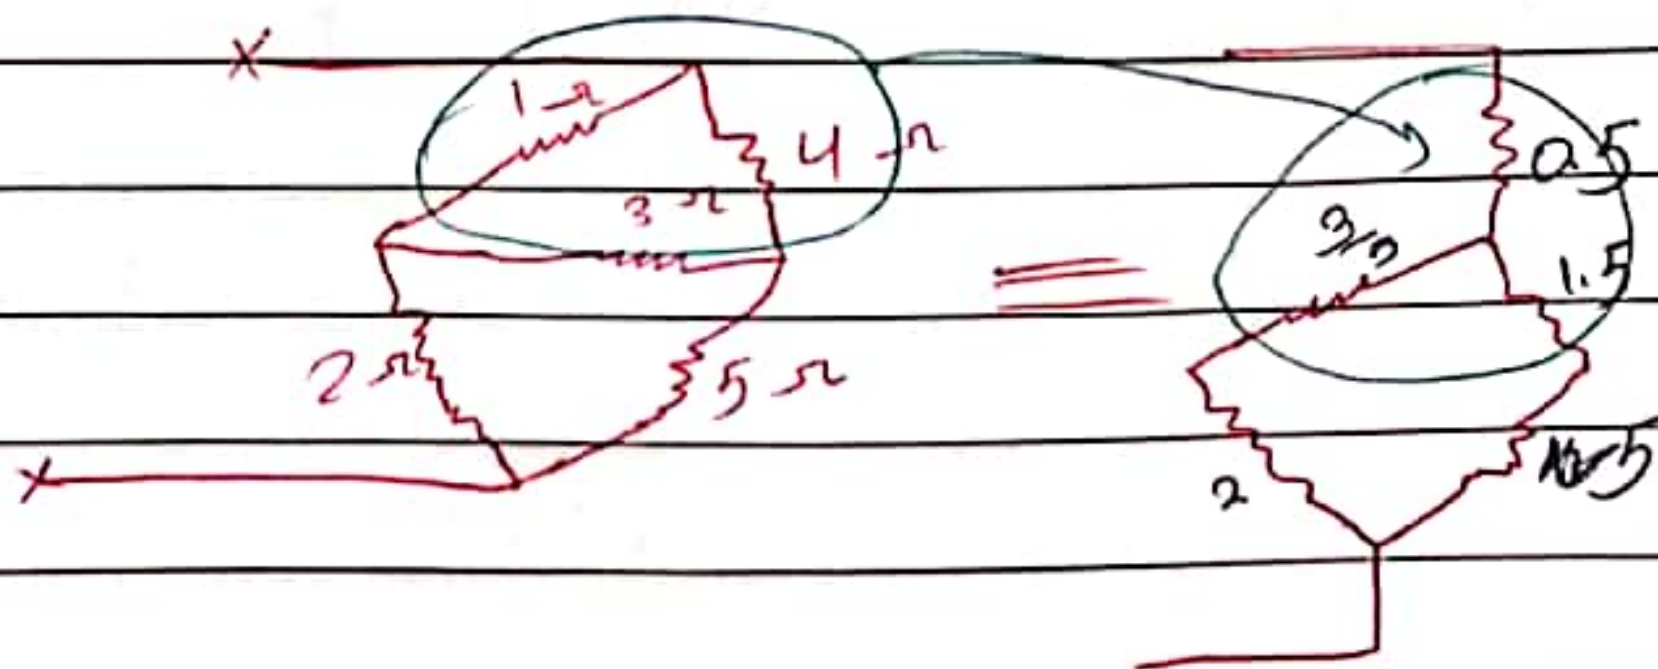 X
1 Ω
4 Ω
3 Ω
2 Ω
5 Ω
X
=
0.5
1.5
2
5